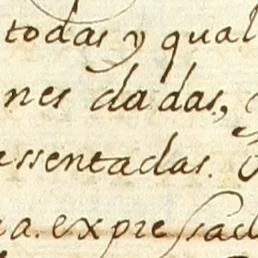 todas y qual
nes dadas,
essentadas.
a. expressad